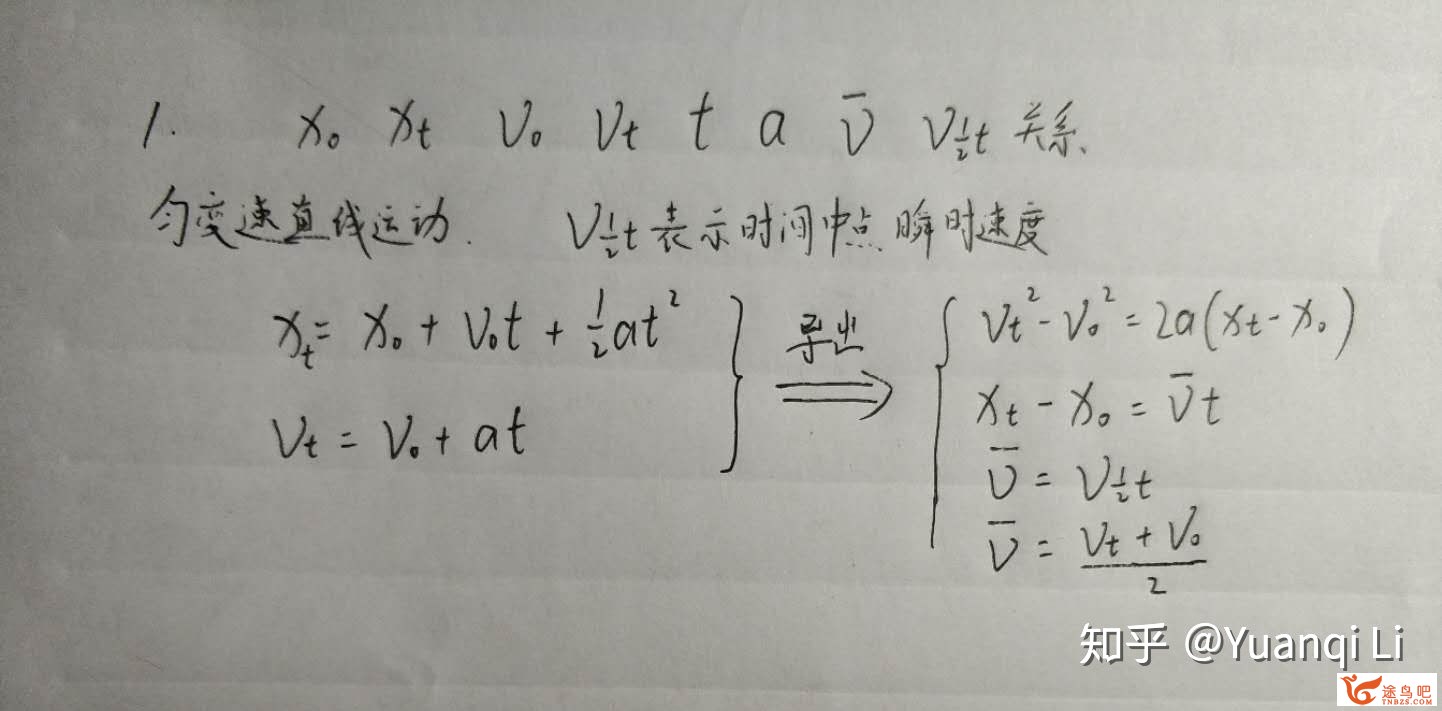 1. x₀ xt v₀ vt t a v̄ v½t 关系.
匀变速直线运动. v½t表示时间中点瞬时速度
xt = x₀ + v₀t + ½at²
vt = v₀ + at
导出
vt² - v₀² = 2a(xt - x₀)
xt - x₀ = v̄t
v̄ = v½t
v̄ = (vt + v₀)/2
知乎 @Yuanqi Li
途鸟吧
TNBZS.COM